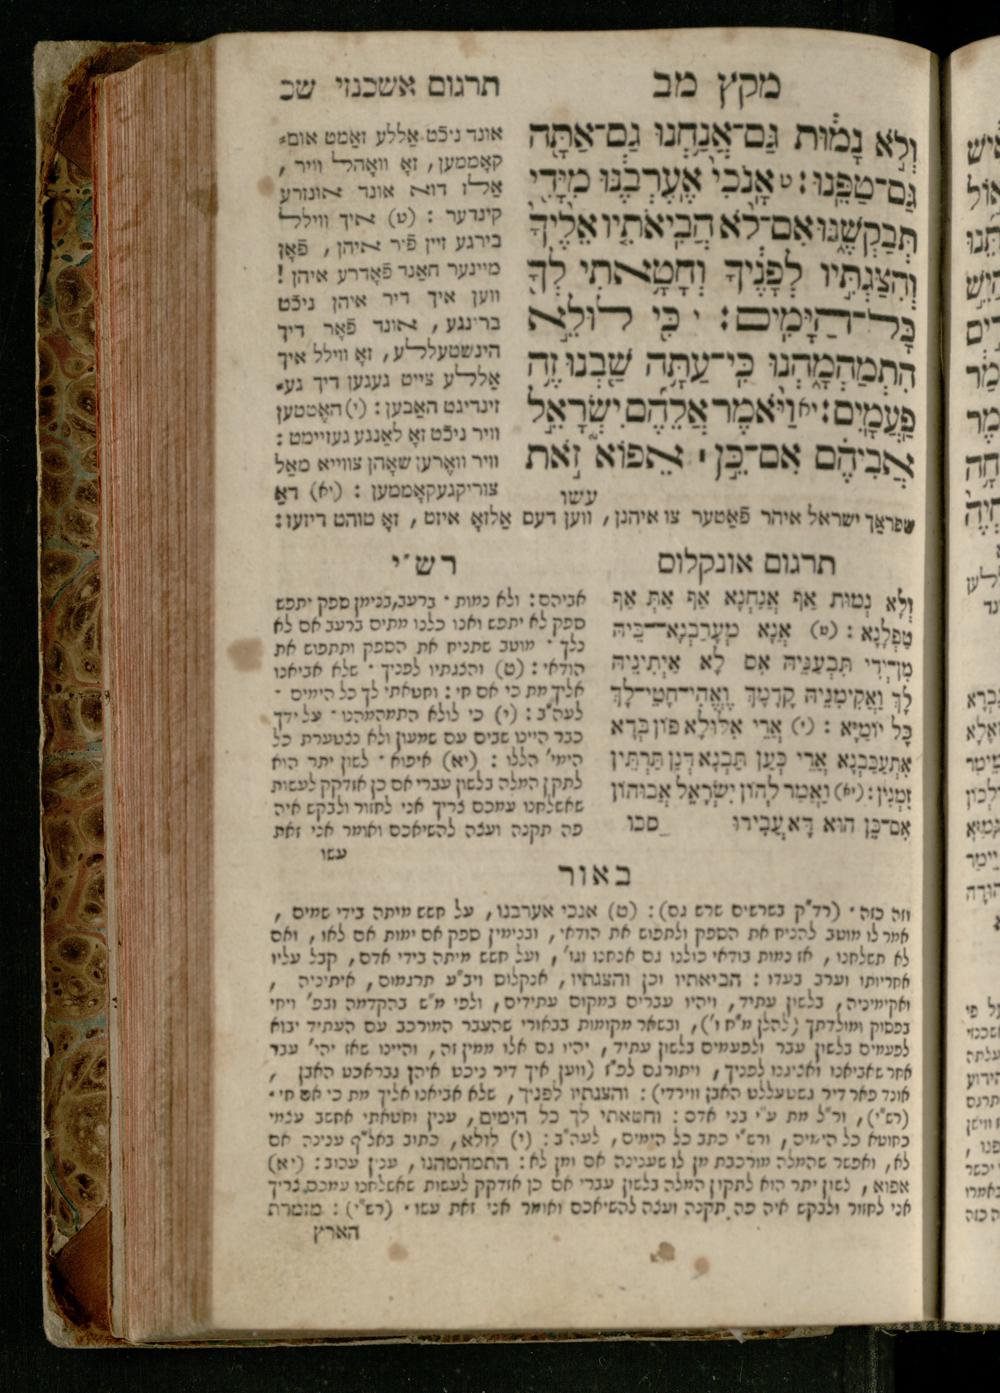 מקץ מב
תרגום אשכנזי שכ
וְלֹא נָמוּת גַּם־אֲנַחְנוּ גַם־אַתָּה
גַּם־טַפֵּנוּ: ט אָנֹכִי אֶעֶרְבֶנּוּ מִיָּדִי
תְּבַקְשֶׁנּוּ אִם־לֹא הֲבִיאֹתִיו אֵלֶיךָ
וְהִצַּגְתִּיו לְפָנֶיךָ וְחָטָאתִי לְךָ
כָּל־הַיָּמִים: י כִּי לוּלֵא
הִתְמַהְמָהְנוּ כִּי־עַתָּה שַׁבְנוּ זֶה
פַעֲמָיִם: יא וַיֹּאמֶר אֲלֵהֶם יִשְׂרָאֵל
אֲבִיהֶם אִם־כֵּן ׀ אֵפוֹא זֹאת
עשו
אונד ניכֿט אַללע זאַמט אומ⸗
קאָממען, זאָ וואָהל וויר,
אַלז דוא אונד אונזרע
קינדער : (ט) איך ווילל
בירגע זיין פֿיר איהן, פֿאָן
מיינער האַנד פֿאָדרע איהן!
ווען איך דיר איהן ניכֿט
ברינגע, אונד פֿאָר דיך
הינשטעללע, זאָ ווילל איך
אַללע צייט געגען דיך גע⸗
זינדיגט האַבען : (י) האָטטען
וויר ניכֿט זאָ לאַנגע געזיימט :
וויר וואָרען שאָהן צווייא מאַל
צוריקגעקאָממען : (יא) דאַ
שפראַך ישראל איהר פֿאַטער צו איהנן, ווען דעם אַלזאָ איזט, זאָ טוהט דיזעז:
תרגום אונקלוס
וְלָא נְמוּת אַף אֲנַחְנָא אַף אַתְּ אַף
טַפְלָנָא : (ט) אֲנָא מְעָרַבְנָא־בֵיהּ
מִן־יְדִי תִּבְעִנֵּיהּ אִם לָא אַיְתִינֵיהּ
לָךְ וַאֲקִימִנֵּיהּ קָדָמָךְ וֶאֱהֵי־חָטֵי־לָךְ
כָּל יוֹמַיָּא : (י) אֲרֵי אִלּוּלָא פוֹן בְּדָא
אִתְעַכַּבְנָא אֲרֵי כְעַן תַּבְנָא דְּנַן תַּרְתֵּין
זִמְנִין : (יא) וַאֲמַר לְהוֹן יִשְׂרָאֵל אֲבוּהוֹן
אִם־כֵּן הוּא דָּא עֲבִירוּ סבו
רש״י
אביהם : ולא נמות · ברעב, בנימן ספק יתפש
ספק לא יתפש ואנו כלנו מתים ברעב אם לא
נלך · מוטב שתניח את הספק ותתפוש את
הודאי : (ט) והצגתיו לפניך · שלא אביאנו
אליך מת כי אם חי : וחטאתי לך כל הימים ·
לעה״ב : (י) כי לולא התמהמהנו · על ידך
כבר היינו שבים עם שמעון ולא נצטערת כל
הימי׳ הללו : (יא) איפוא · לשון יתר הוא
לתקן המלה בלשון עברי אם כן אזדקק לעשות
שאשלחנו עמכם צריך אני לחזור ולבקש איה
פה תקנה ועצה להשיאכם ואומר אני זאת
עשו
באור
וזה כזה · (רד״ק בשרשים שרש גם) : (ט) אנכי אערבנו, על חשש מיתה בידי שמים,
אמר לו מוטב להניח את הספק ולתפוש את הודאי, ובנימין ספק אם ימות אם לאו, ואם
לא תשלחנו, אז נמות בודאי כולנו גם אנחנו וגו׳, ועל חשש מיתה בידי אדם, קבל עליו
אחריותו וערב בעדו : הביאתיו וכן והצגתיו, אנקלום ויב״ע תרגמום, איתיניה,
ואקימיניה, בלשון עתיד, ויהיו עברים במקום עתידים, ולפי מ״ש בהקדמה ובפ׳ ויחי
בפסוק ומולדתך (להלן מ״ח ו׳), ובשאר מקומות בבאורי שהעבר המורכב עם העתיד יבוא
לפעמים בלשון עבר ולפעמים בלשון עתיד, יהיו גם אלו ממין זה, והיינו שאז יהי׳ עבד
אחר שאביאנו ואציגנו לפניך, ויתורגם לפ״ז (ווען איך דיר ניכט איהן גבראכט האבן,
אונד פאר דיר גשטעללט האבן ווירדי) : והצגתיו לפניך, שלא אביאנו אליך מת כי אם חי ·
(רש״י), ור״ל מת ע״י בני אדם : וחטאתי לך כל הימים, ענין וחטאתי אחשב עצמי
כחוטא כל הימים, ורש״י כתב כל הימים, לעה״ב : (י) לולא, כתוב באל״ף ענינה אם
לא, ואפשר שהמלה מורכבת מן לו שענינה אם ומן לא : התמהמהנו, ענין עכוב : (יא)
אפוא, לשון יתר הוא לתקון המלה בלשון עברי אם כן אזדקק לעשות שאשלחנו עמכם צריך
אני לחזור ולבקש איה פה תקנה ועצה להשיאכם ואומר אני זאת עשו · (רש״י) : מזמרת
הארץ